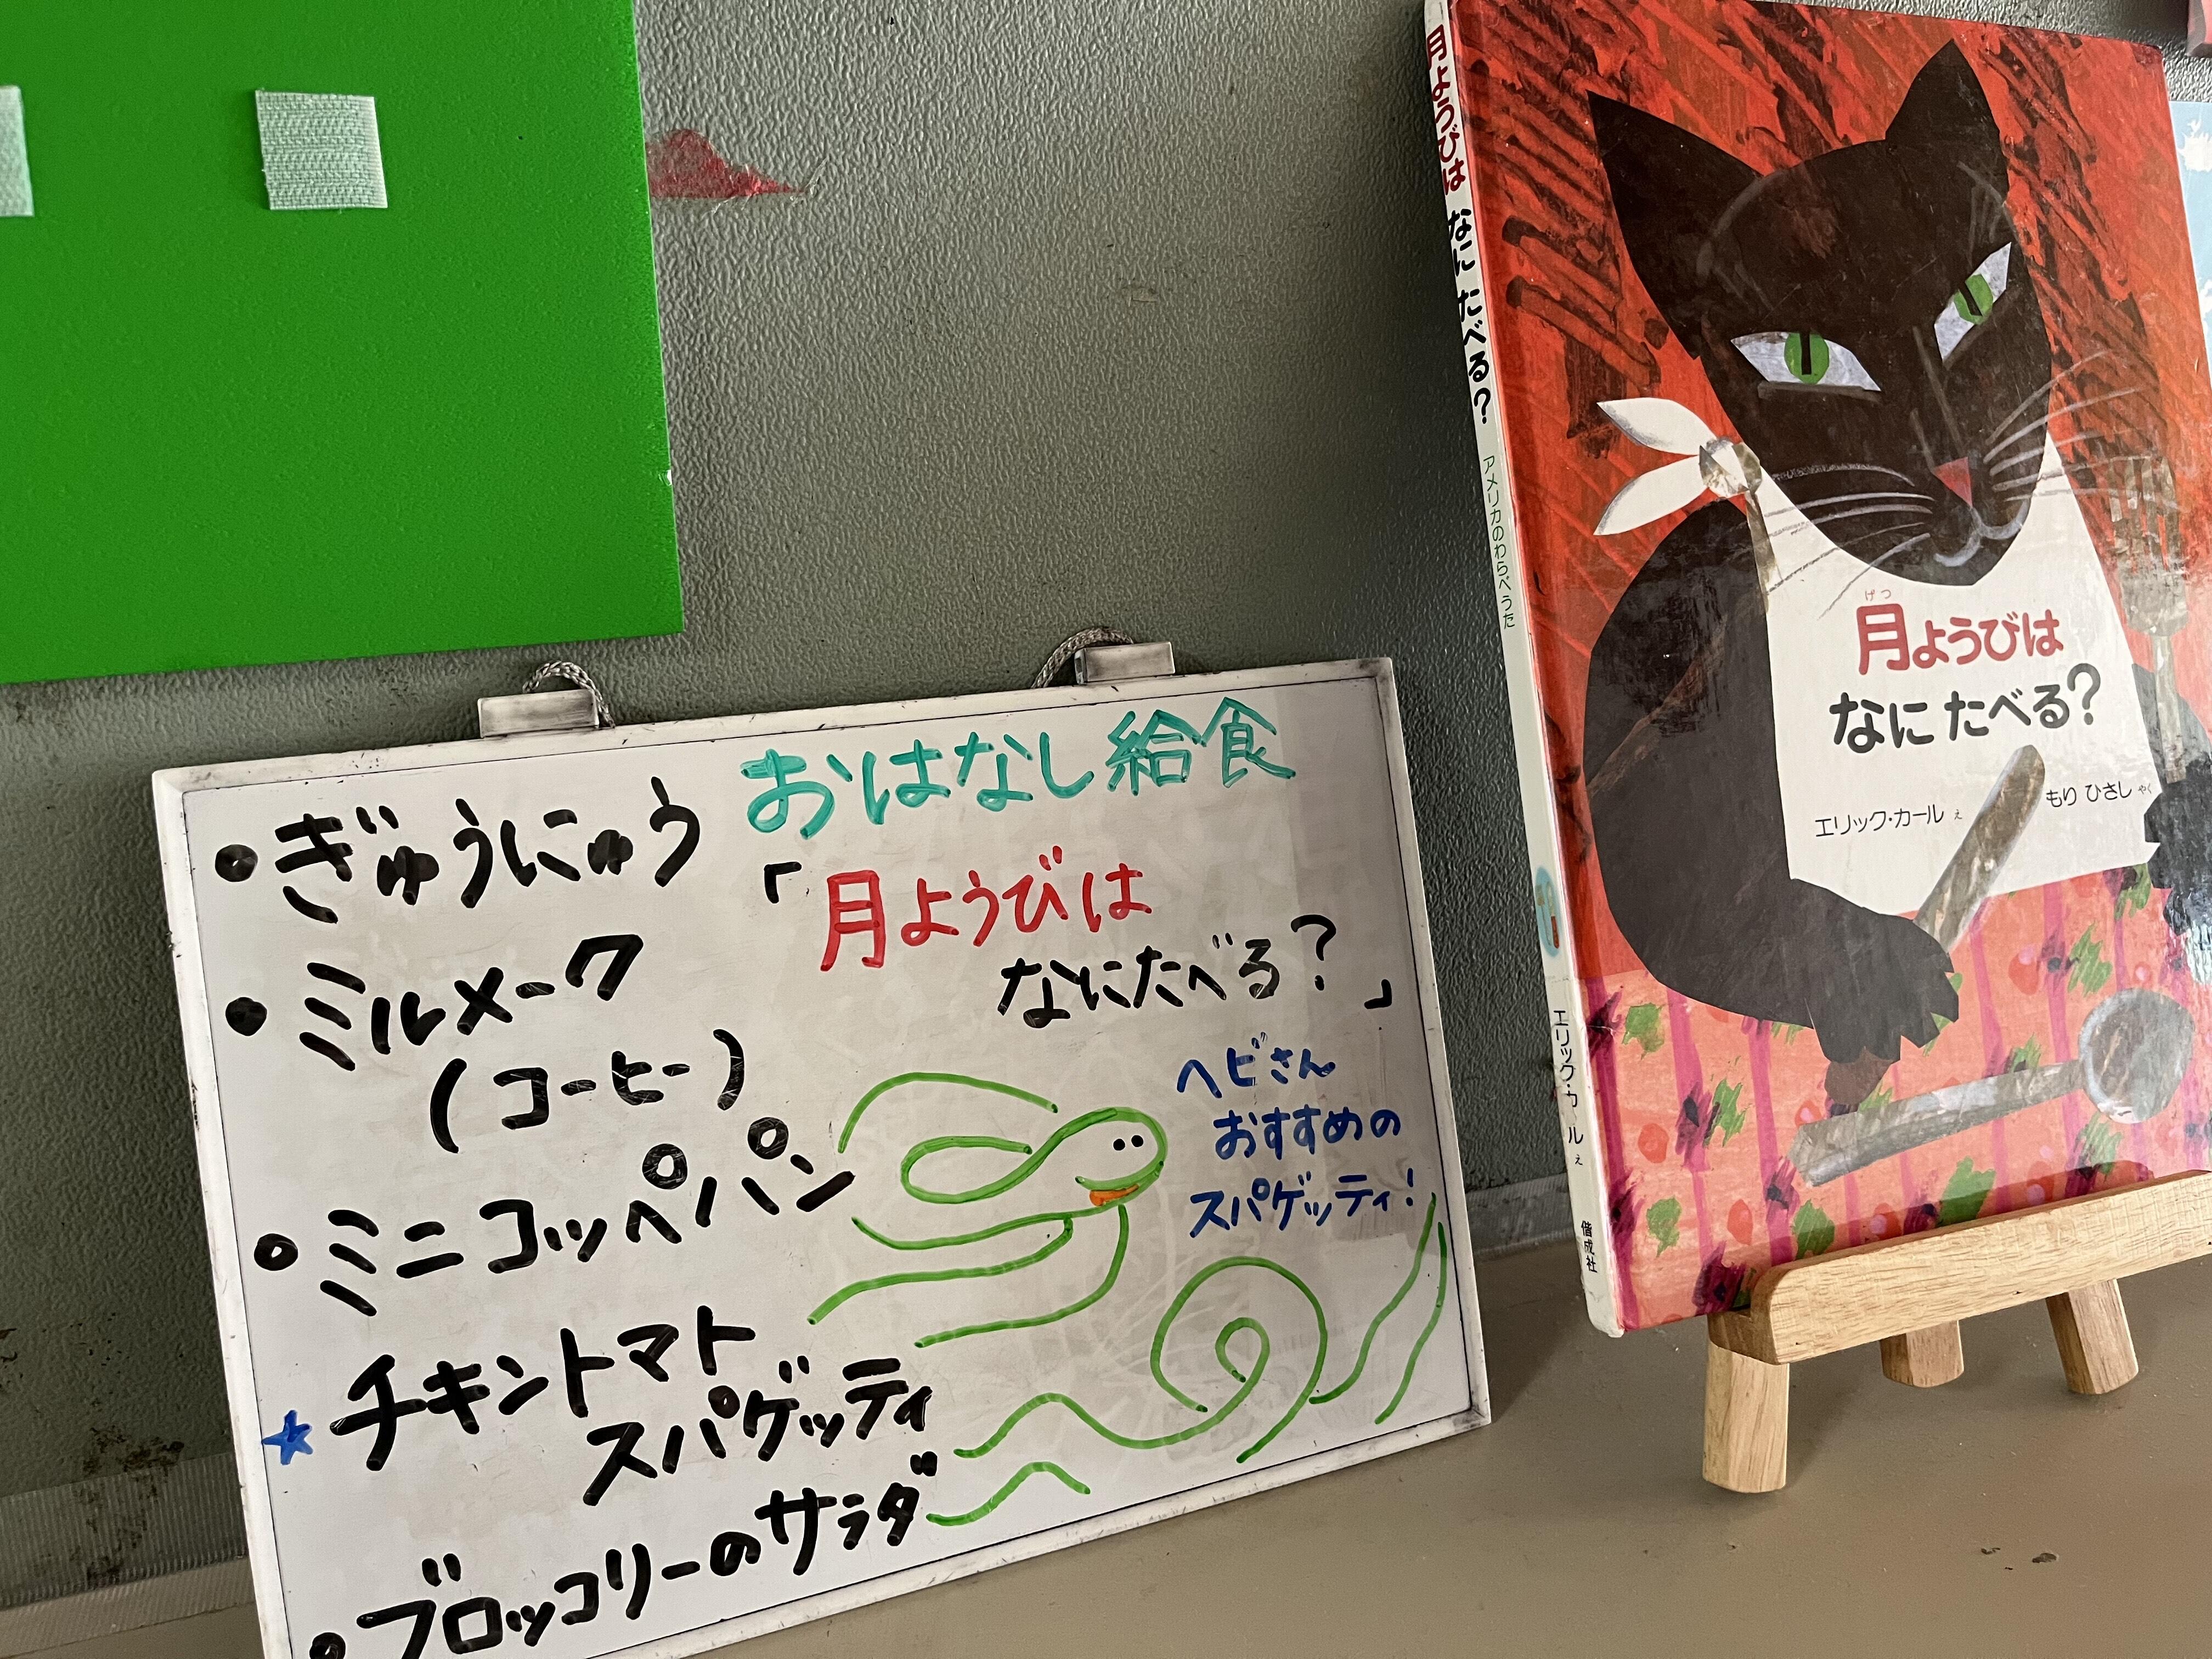 おはなし給食
「月ようびは
なにたべる?」
ヘビさん
おすすめの
スパゲッティ!
・ぎゅうにゅう
・ミルメーク
(コーヒー)
・ミニコッペパン
★チキントマト
スパゲッティ
・ブロッコリーのサラダ
月ようびは なに たべる?
アメリカのわらべうた
エリック・カール え
偕成社
げつ
月ようびは
なに たべる?
エリック・カール え
もり ひさし やく